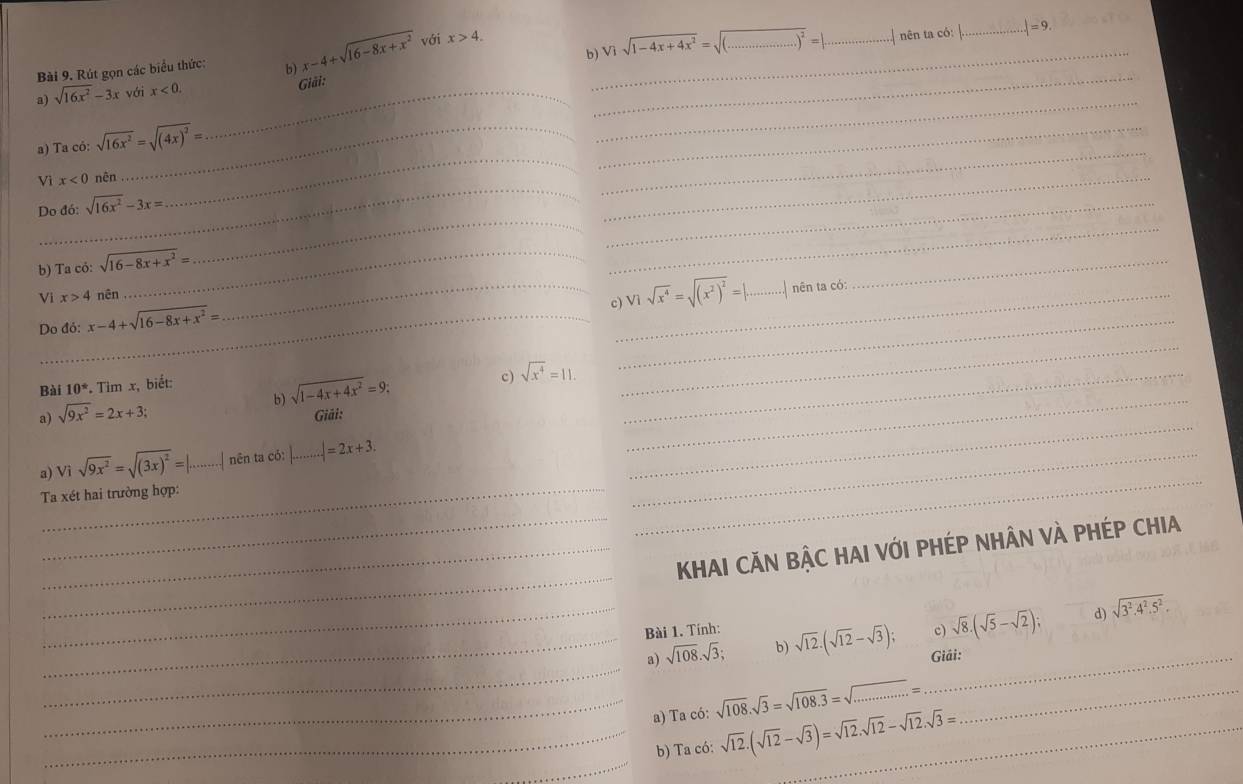 Bài 9. Rút gọn các biểu thức:
a) √(16x²) − 3x với x < 0.
b) x − 4 + √(16 − 8x + x²) với x > 4.
Giải:
a) Ta có: √(16x²) = √((4x)²) = ....................
Vì x < 0 nên ....................
Do đó: √(16x²) − 3x = ....................
b) Ta có: √(16 − 8x + x²) = ....................
Vì x > 4 nên ....................
Do đó: x − 4 + √(16 − 8x + x²) = ....................
Bài 10*. Tìm x, biết:
a) √(9x²) = 2x + 3;
b) √(1 − 4x + 4x²) = 9;
c) √(x⁴) = 11.
Giải:
a) Vì √(9x²) = √((3x)²) = |.........| nên ta có: |.........| = 2x + 3.
Ta xét hai trường hợp:
b) Vì √(1 − 4x + 4x²) = √((....................)²) = |....................| nên ta có: |....................| = 9.
c) Vì √(x⁴) = √((x²)²) = |...........| nên ta có: ....................
KHAI CĂN BẬC HAI VỚI PHÉP NHÂN VÀ PHÉP CHIA
Bài 1. Tính:
a) √108.√3;
b) √12.(√12 − √3);
c) √8.(√5 − √2);
d) √(3².4².5²).
Giải:
a) Ta có: √108.√3 = √(108.3) = √(...............) = ....................
b) Ta có: √12.(√12 − √3) = √12.√12 − √12.√3 = ....................